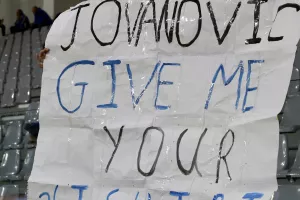 JOVANOVIC
GIVE ME
YOUR